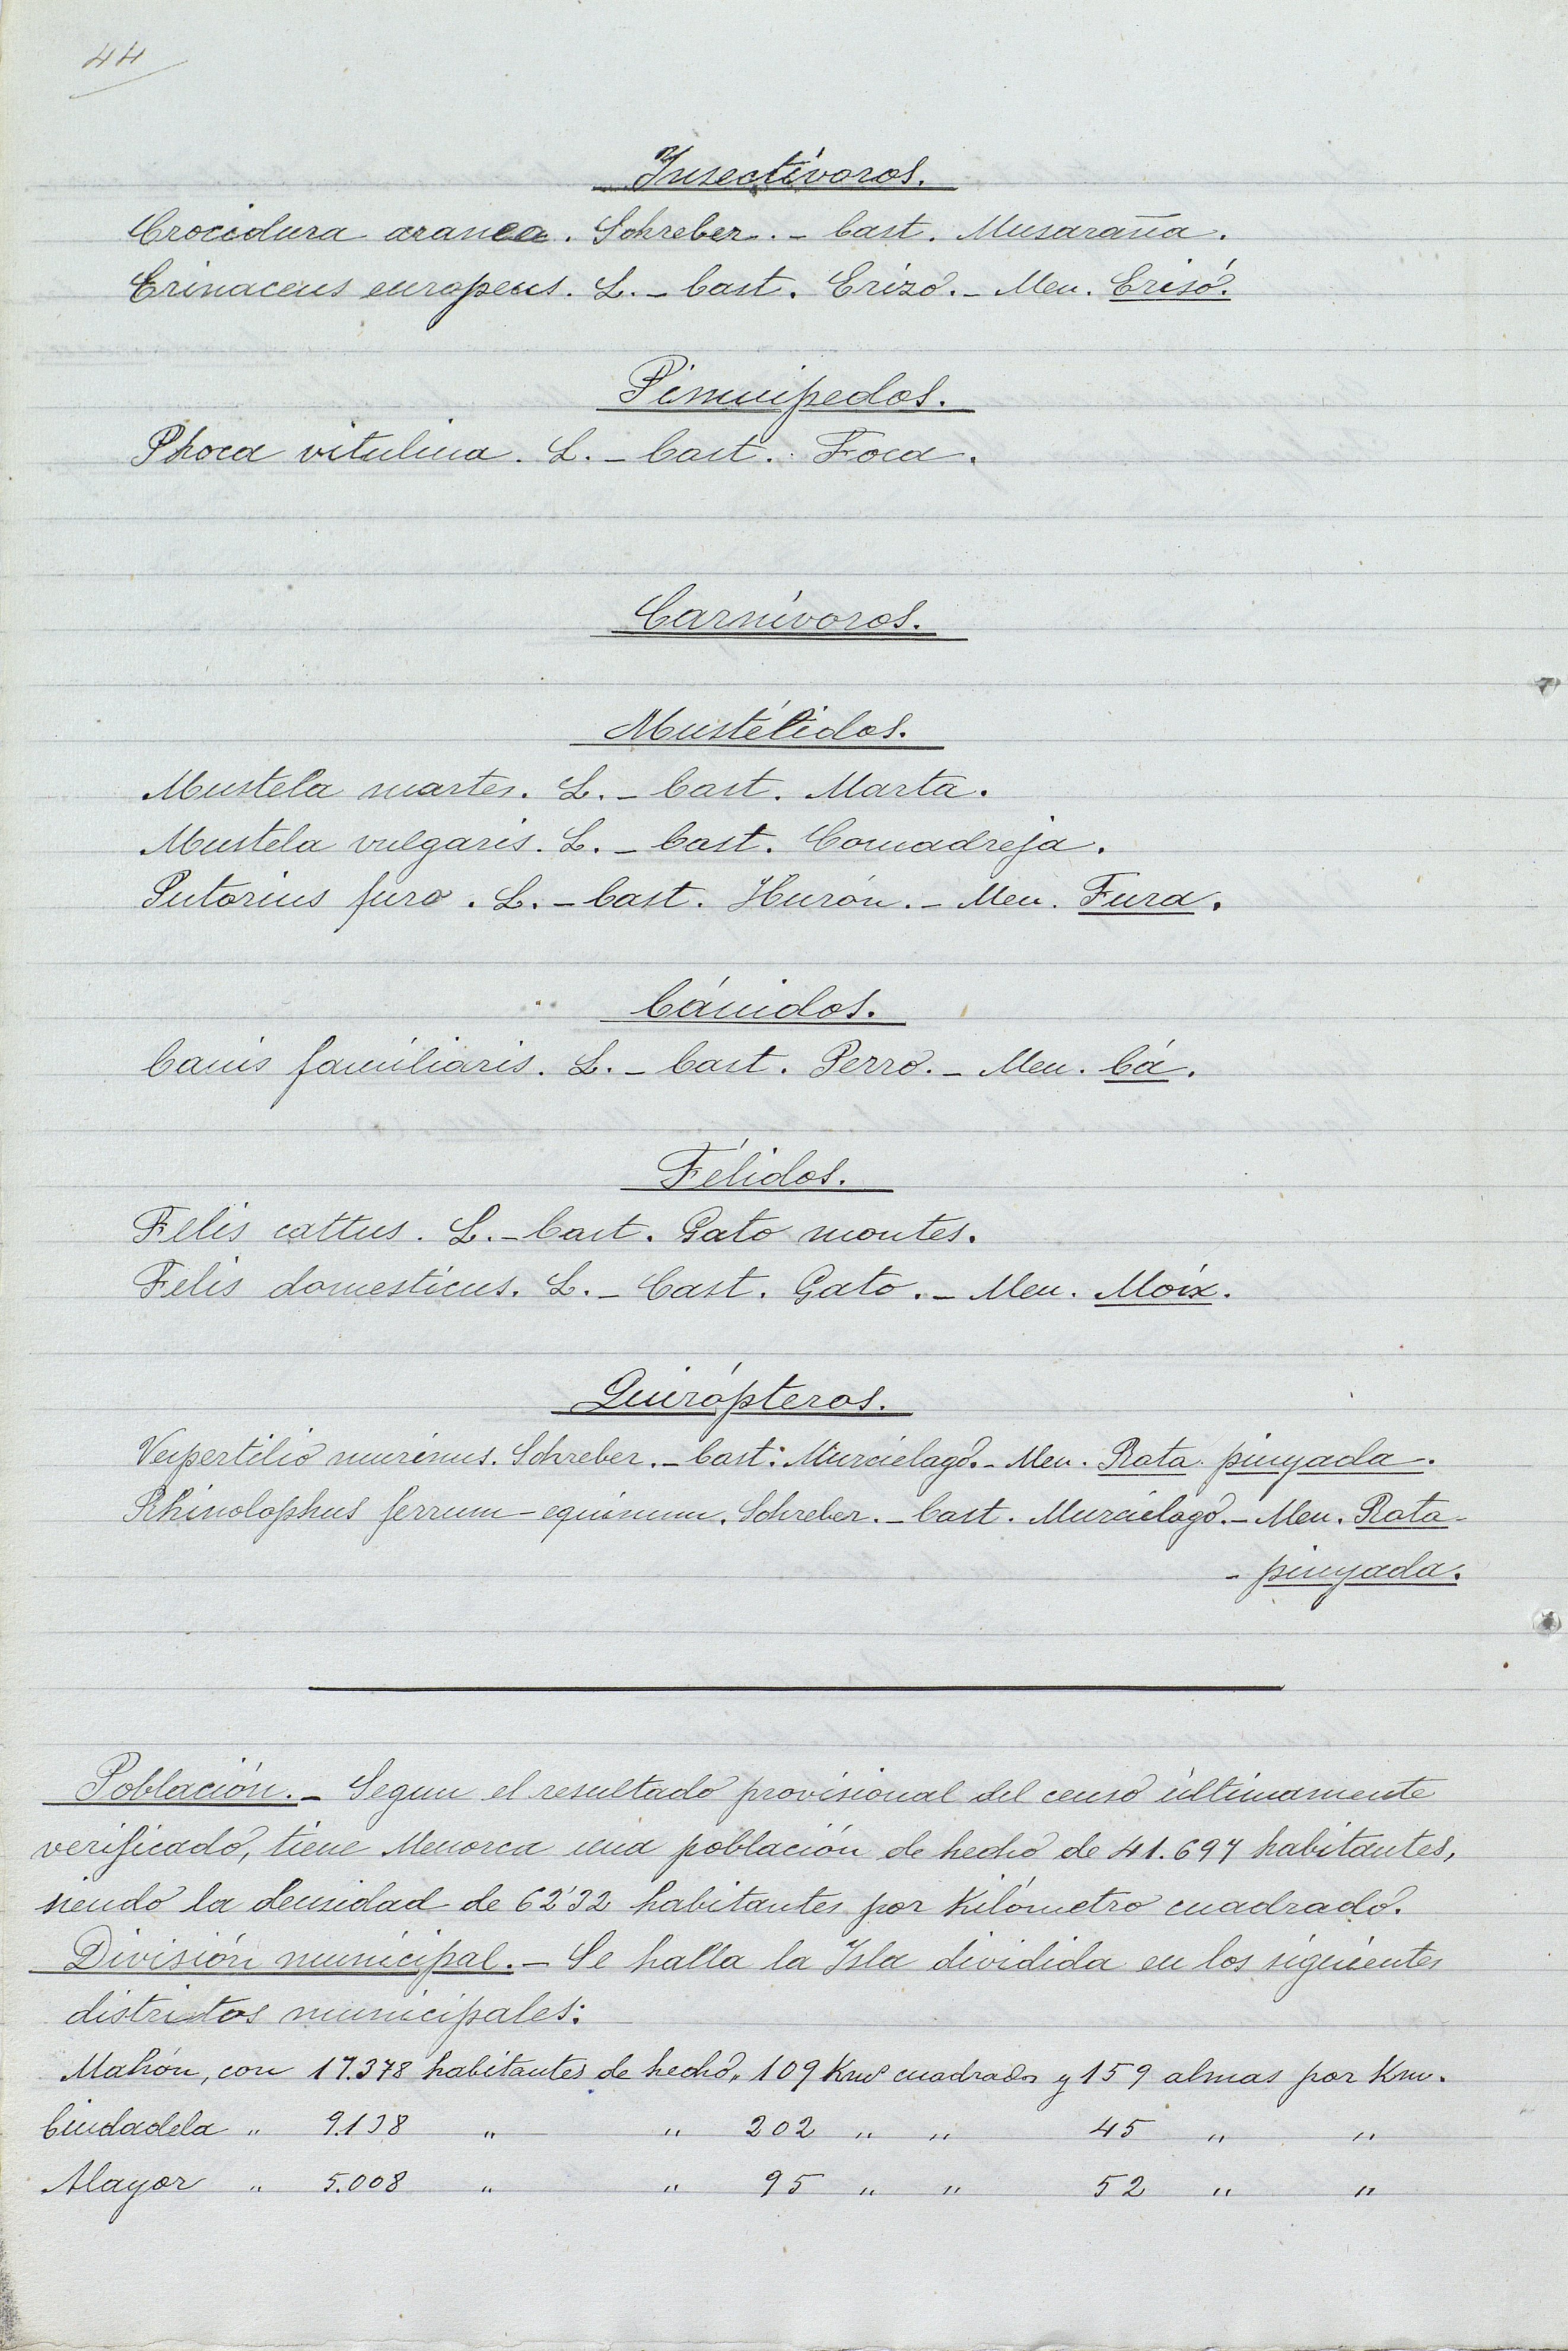 44
Insectívoros.
Crocidura aranea. Schreber. - Cast. Musaraña.
Erinaceus europeus. L. - Cast. Erizo. - Men. Erisó.
Pinnipedos.
Phoca vitulina. L. - Cast. Foca.
Carnívoros.
Mustélidos.
Mustela martes. L. - Cast. Marta.
Mustela vulgaris. L. - Cast. Comadreja.
Putorius furo. L. - Cast. Hurón. - Men. Fura.
Cánidos.
Canis familiaris. L. - Cast. Perro. - Men. Cá.
Félidos.
Felis cattus. L. - Cast. Gato montes.
Felis domesticus. L. - Cast. Gato. - Men. Moix.
Quirópteros.
Vespertilio murinus. Schreber. - Cast. Murciélago. - Men. Rata pinyada.
Rhinolophus ferrum-equinum. Schreber. - Cast. Murciélago. - Men. Rata-
- pinyada.
Población. - Segun el resultado provisional del censo últimamente
verificado, tiene Menorca una población de hecho de 41.697 habitantes,
siendo la densidad de 62'32 habitantes por Kilómetro cuadrado.
División municipal. - Se halla la Isla dividida en los siguientes
distritos municipales:
Mahón, con 17.378 habitantes de hecho, 109 Kms cuadrados y 159 almas por Km.
Ciudadela " 9.138 " " 202 " " 45 " "
Alayor " 5.008 " " 95 " " 52 " "